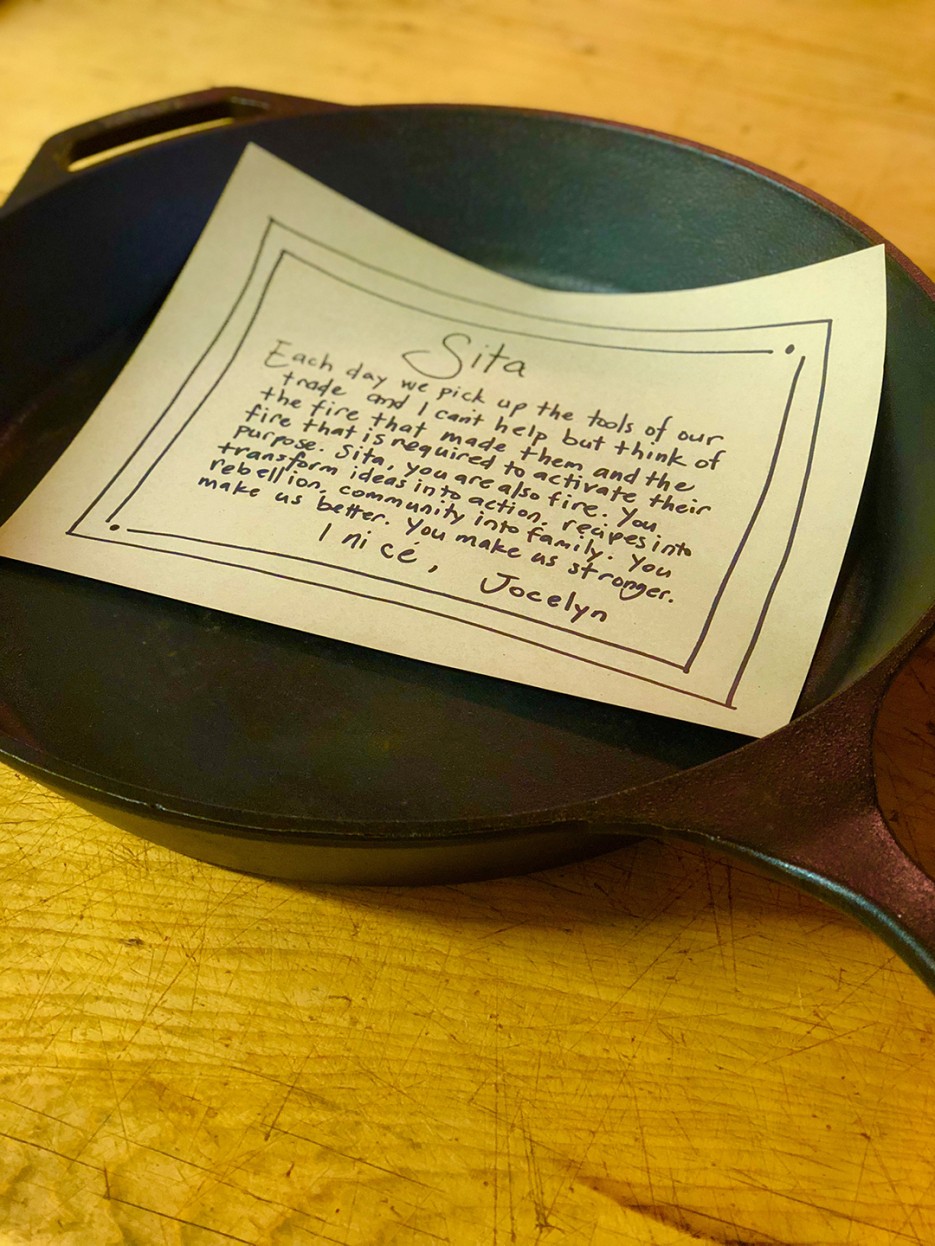 Sita
Each day we pick up the tools of our
trade and I can't help but think of
the fire that made them and the
fire that is required to activate their
purpose. Sita, you are also fire. You
transform ideas into action, recipes into
rebellion, community into family. You
make us better. You make us stronger.
I nicé,
Jocelyn